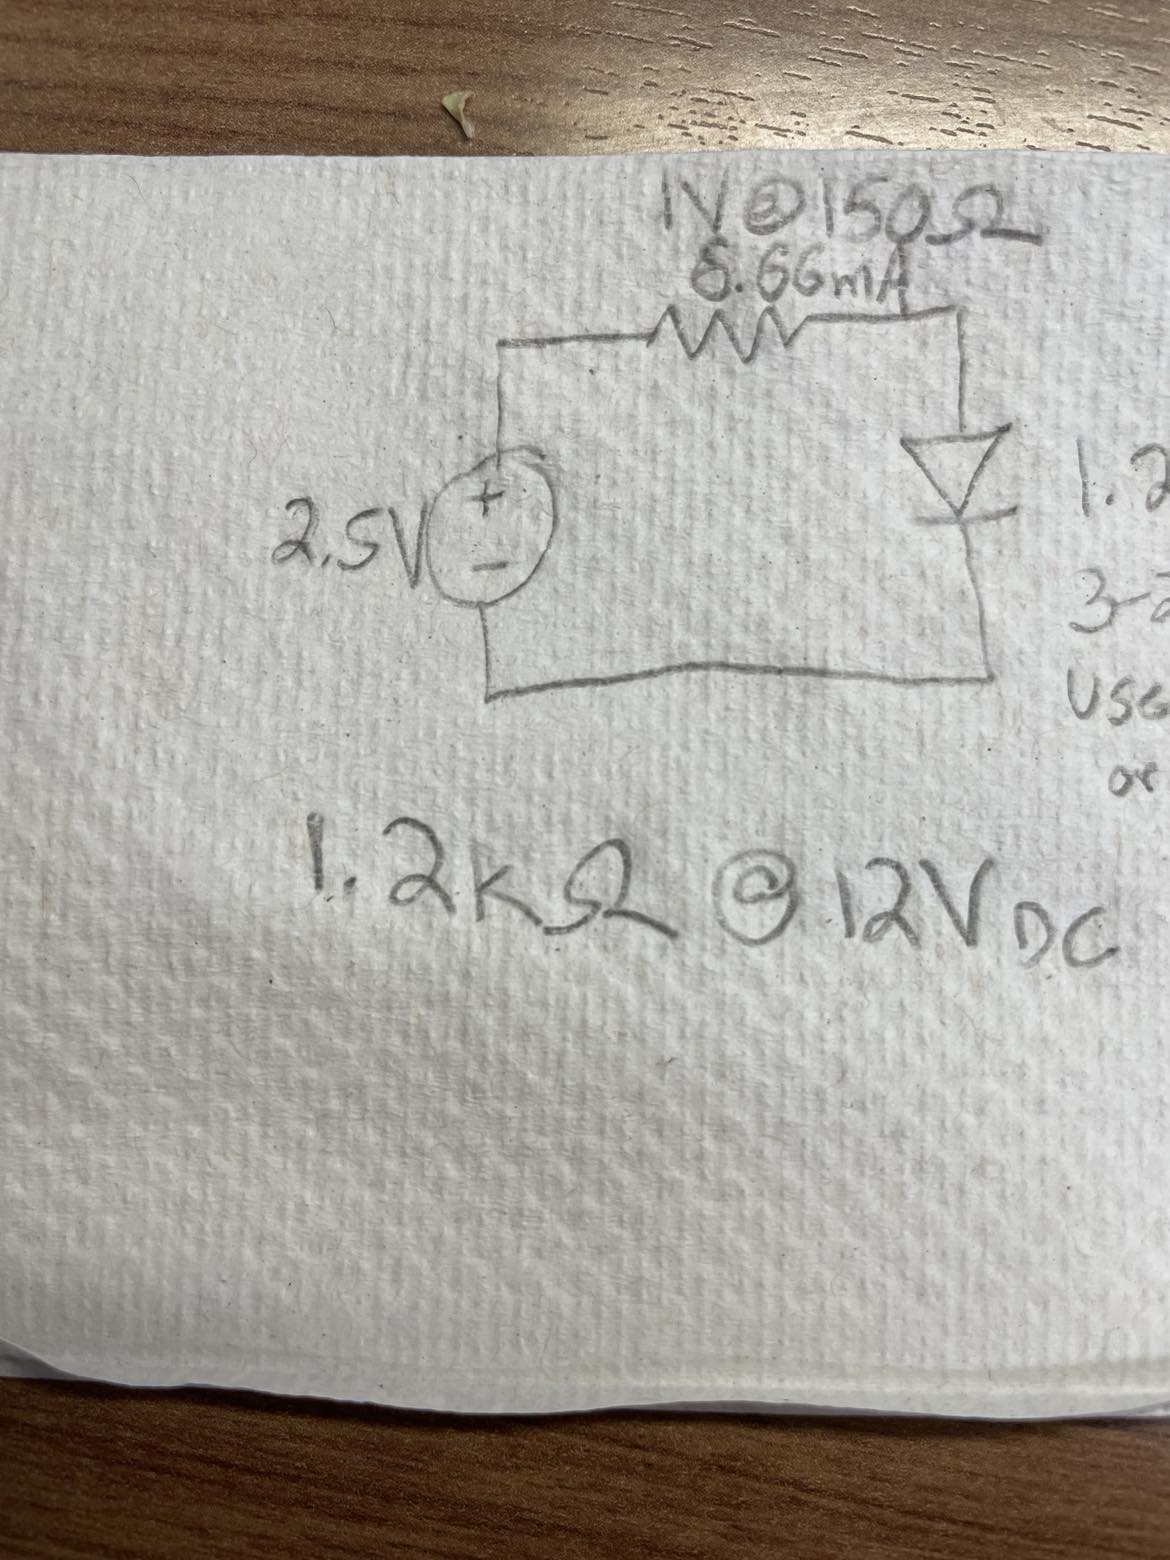 1V @ 150Ω
6.66mA
2.5V
+
-
1.2
3-2
Use
or
1.2kΩ @ 12VDC